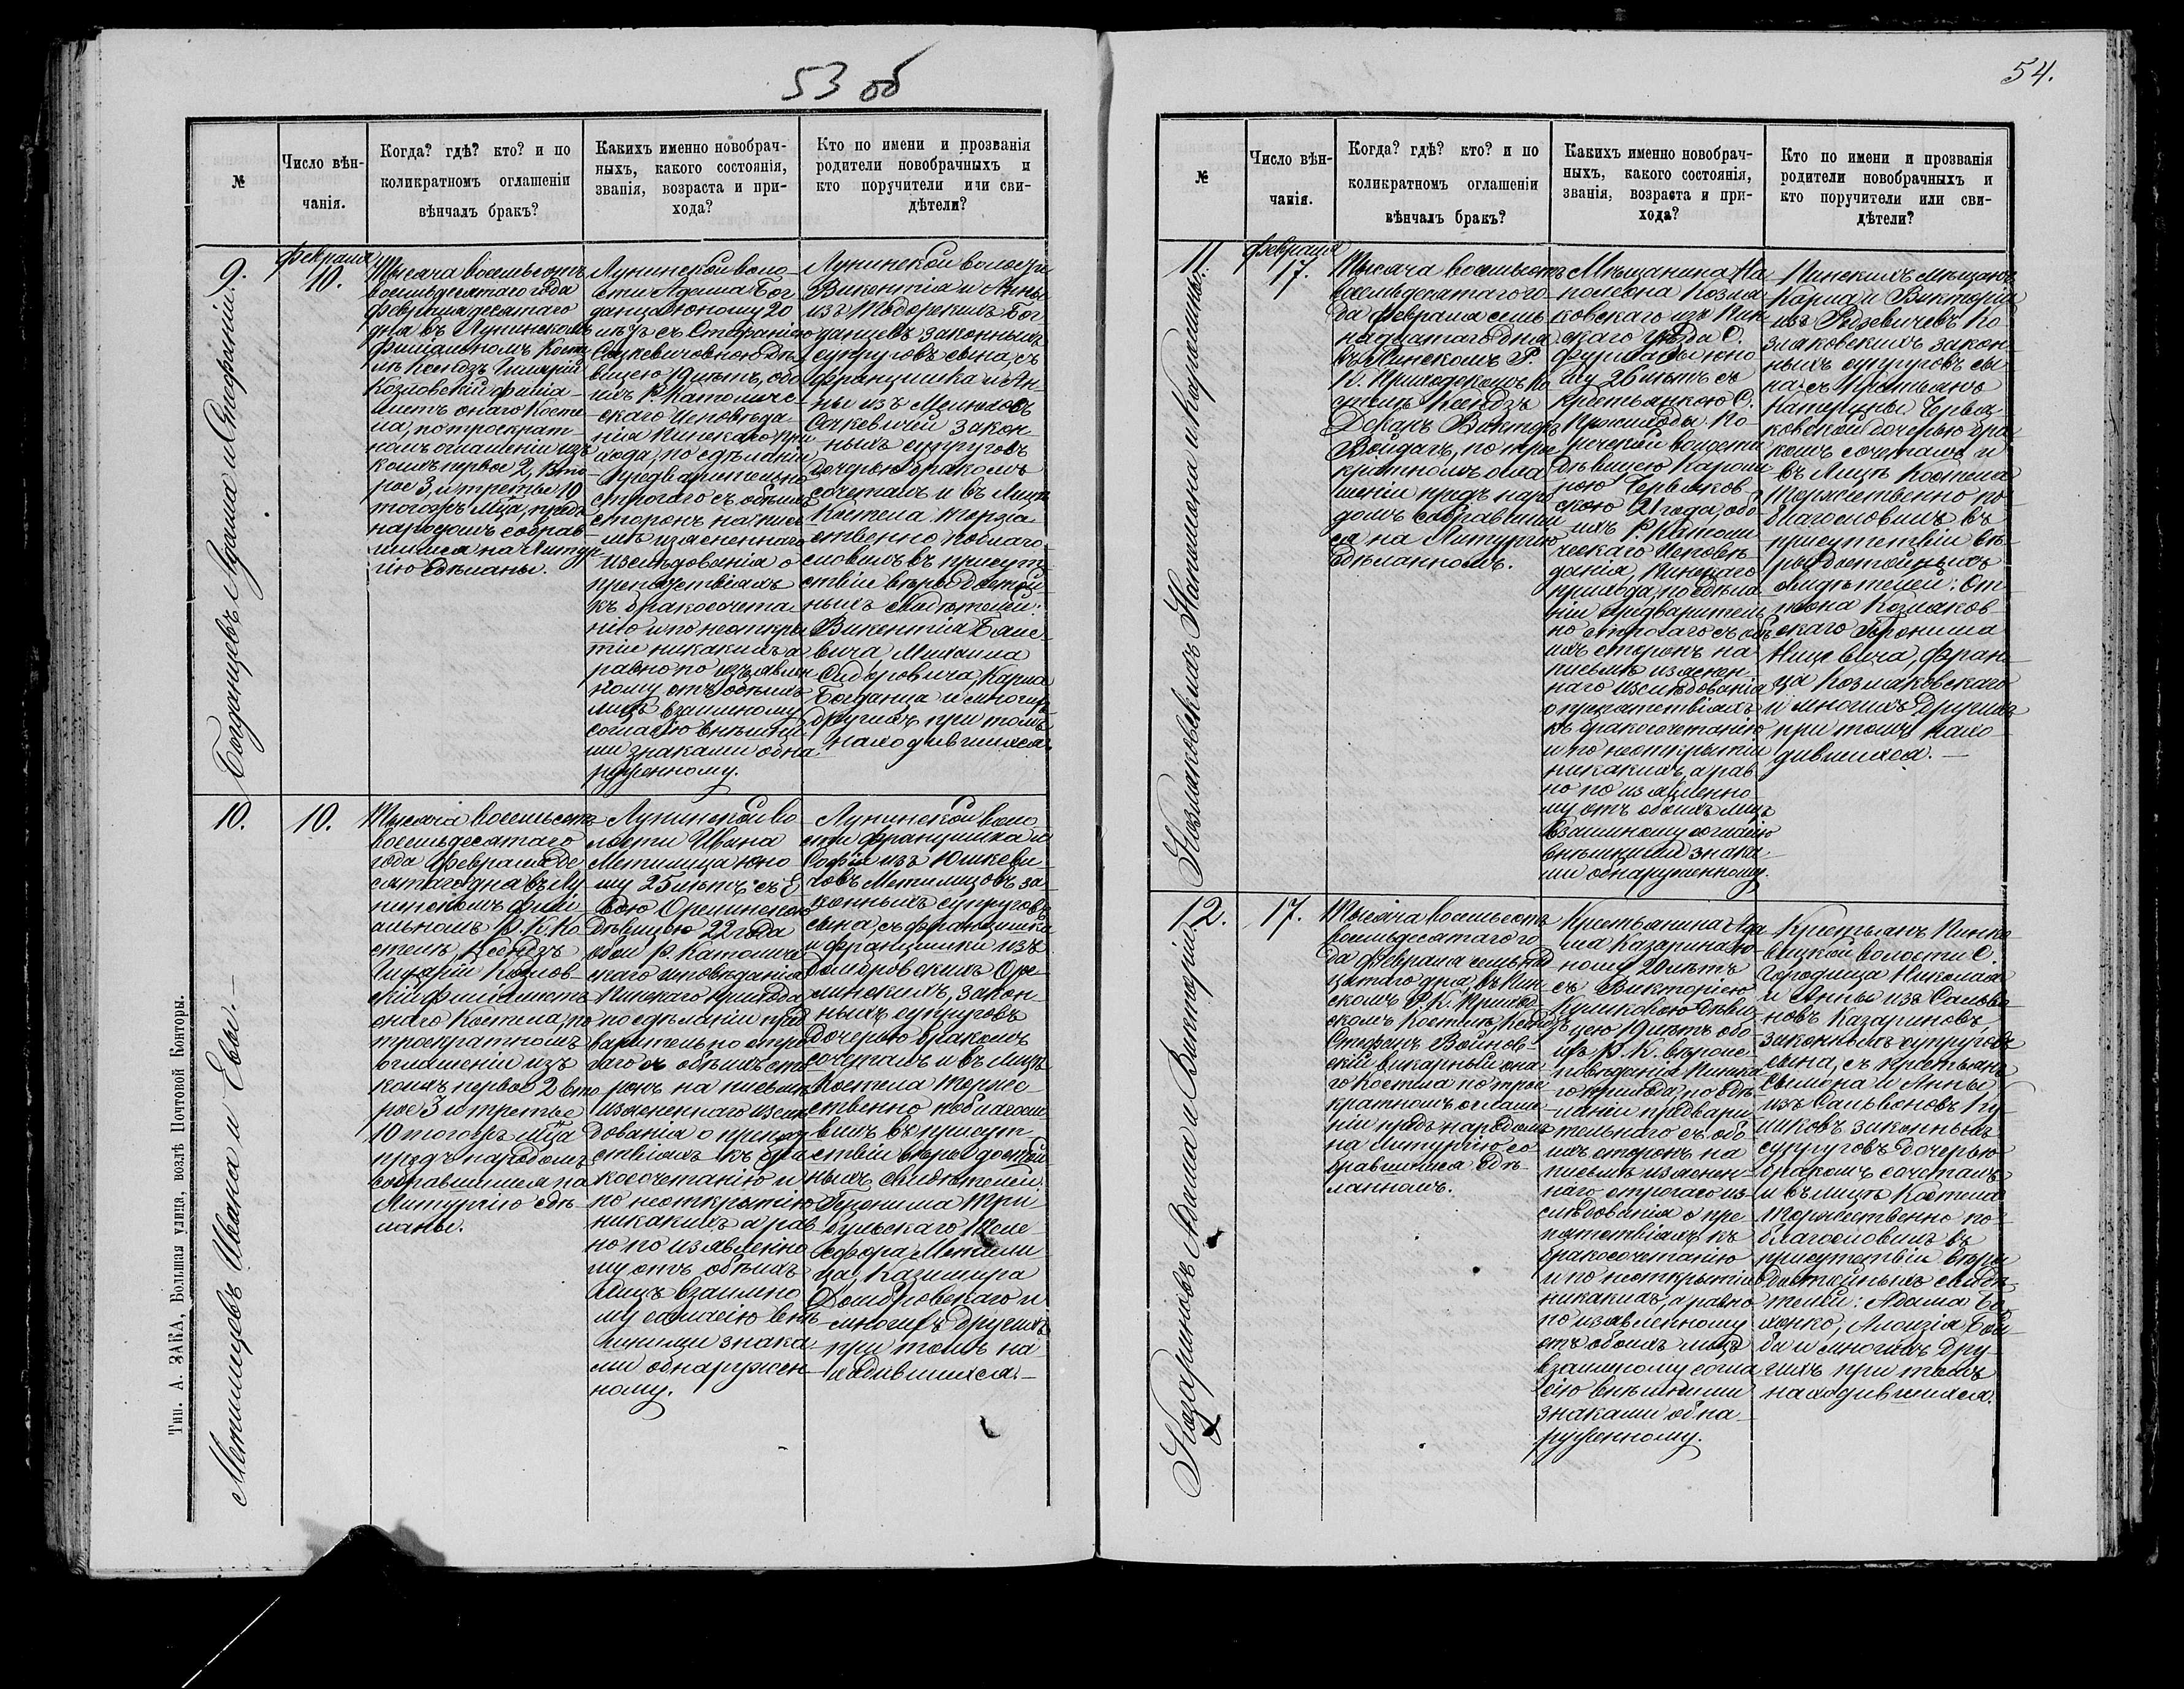 53 об
№
Число вѣн-
чанія.
Когда? гдѣ? кто? и по
коликратномъ оглашеніи
вѣнчалъ бракъ?
Какихъ именно новобрач-
ныхъ, какого состоянія,
званія, возраста и при-
хода?
Кто по имени и прозванія
родители новобрачныхъ и
кто поручители или сви-
дѣтели?
9.
Богданцевъ Адама и Стефаніи
Февраля
10.
Тысяча восемьсотъ
восемьдесятаго года
февраля десятаго
дня въ Лунинскомъ
филіальномъ Косте
лѣ Ксендзъ Гиларій
Козловскій филіа-
листъ онаго Косте-
ла, по троекрат-
номъ оглашеніи изъ
коихъ первое 2, вто-
рое 3, и третье 10
тогожъ м̃ца, предъ
народомъ собрав-
шимся на Литур-
гію сдѣланы.
Лунинской воло-
сти Адама Бог
данца юношу 20
лѣтъ съ Стефаніею
Сацкевичовною дѣ
вицею 19 лѣтъ, обо
ихъ Р. Католиче-
скаго Исповѣда-
нія Пинскаго при
хода, по сдѣланіи
предварительно
строгаго съ обѣихъ
сторонъ на пись
мѣ изясненнаго
изслѣдованія о
препятствіяхъ
къ бракосочета
нію и по неоткры
тіи никакихъ а
равно по изъявлен
ному отъ обѣихъ
лицъ взаимному
согласію внѣшни
ми знаками обна
руженному.
Лунинской волости
Викентія и Анны
изъ Тодорскихъ Бог
данцевъ законныхъ
супруговъ сына, съ
Францишка и Ан-
ны изъ
Сацкевичей закон-
ныхъ супруговъ
дочерью бракомъ
сочеталъ и въ Лицѣ
Костела торже
ственно поблаго
словилъ въ присут
ствіи вѣры достой
ныхъ свидѣтелей:
Викентія
вича Михаила
Сидоровича, Карла
Богданца и многихъ
другихъ при томъ
находившихся.
10.
Метлицевъ Ивана и Евы.
10.
Тысяча восемьсотъ
восемьдесятаго
года февраля де
сятаго дня въ Лу
нинскомъ фили
альномъ Р. К. Ко
стелѣ Ксендзъ
Гиларій Козлов-
скій филіалистъ
онаго Костела, по
троекратномъ
оглашеніи изъ
коихъ первое 2 вто
рое 3 и третье
10 тогожъ м̃ца
предъ народомъ
собравшимся на
Литургію сдѣ-
ланы.
Лунинской во
лости Ивана
Метлица юно
шу 25 лѣтъ съ Е
вою Орлинскою
дѣвицею 22 года
обои Р. Католиче
скаго исповѣданія
Пинскаго прихода
по сдѣланіи пред
варительно стро
гаго съ обѣихъ сто
ронъ на письмѣ
изясненнаго изслѣ
дованія о препят
ствіяхъ къ бра
косочетанію и
по неоткрытію
никакихъ а рав
но по изявленно
му отъ обѣихъ
Лицъ взаимно
му согласію внѣ
шними знака-
ми обнаружен
ному.
Лунинской воло
сти Францишка и
Софіи изъ Юшкеви-
човъ Метлицовъ за
конныхъ супруговъ
сына, съ Францишка
и Францишки изъ
Домбровскихъ Ор-
линскихъ, закон-
ныхъ супруговъ
дочерью бракомъ
сочеталъ и въ Лицѣ
Костела торже
ственно поблагосло
вилъ въ присут
ствіи вѣры достой
ныхъ свидѣтелей:
Геронима
Метли
ца, Казимира
Домбровскаго и
многихъ другихъ
при томъ на
ходившихся.
Тип. А. ЗАКА, Большая улица, возлѣ Почтовой Конторы.
54.
№
Число вѣн-
чанія.
Когда? гдѣ? кто? и по
коликратномъ оглашеніи
вѣнчалъ бракъ?
Какихъ именно новобрач-
ныхъ, какого состоянія,
званія, возраста и при-
хода?
Кто по имени и прозванія
родители новобрачныхъ и
кто поручители или сви-
дѣтели?
11.
Козляковскихъ Наполеона и Каролины
Февраля
17.
Тысяча восемьсотъ
восемьдесятаго го
да февраля семь
надцатаго дня
въ Пинскомъ Р.
К. Приходскомъ Ко
стелѣ Ксендзъ
Деканъ Викторъ
Войдагъ, по трое
кратномъ огла
шеніи предъ наро
домъ собравшим
ся на Литургію
сдѣланномъ.
Мѣщанина На
полеона Козля
ковскаго изъ Пин
скаго уѣзда С.
юно
шу 26 лѣтъ съ
крестьянкою С.
По
рѣчской волости
дѣвицею Кароли
ною Червяков
скою 21 года, обо
ихъ Р. Католи
ческаго Исповѣ
данія, Пинскаго
прихода, по сдѣла
ніи предваритель
но строгаго съ обѣ
ихъ сторонъ на
письмѣ изяснен
наго изслѣдованія
о препятствіяхъ
къ бракосочетанію
и по неоткрытіи
никакихъ, а рав
но по изявленно
му отъ обѣихъ лицъ
взаимному согласію
внѣшними знака-
ми обнаруженному.
Пинскихъ мѣщанъ
Карла и Викторіи
изъ Ко-
зляковскихъ закон-
ныхъ супруговъ сы
на съ Крестьянъ
Катерины Червя
ковской дочерью бра
комъ сочеталъ и
въ Лицѣ Костела
Торжественно по
благословилъ въ
присутствіи вѣ
ры достойныхъ
свидѣтелей: Ан
тона Козляков
скаго Геронима
Фран
ца Козляковскаго
и многихъ другихъ
при томъ нахо
дившихся.
12.
Казариновъ Адама и Викторіи
17.
Тысяча восемьсотъ
восемьдесятаго го
да февраля семьнад
цатаго дня, въ Пин
скомъ Р. К. Приход
скомъ Костелѣ, Ксендзъ
Стефанъ Войнов-
скій викарный она
го Костела по трое
кратномъ оглаше
ніи предъ народомъ
на литургію со
бравшимся сдѣ-
ланномъ.
Крестьянина Ада
ма Казарина ю
ношу 20 лѣтъ
съ Викторіею
дѣви
цею 19 лѣтъ обо
ихъ Р. К. вѣроис-
повѣданія Пинска
го прихода, по сдѣ
ланіи предвари
тельнаго съ обѣ
ихъ сторонъ на
письмѣ изяснен-
наго строгаго из-
слѣдованія о пре
пятствіяхъ къ
бракосочетанію
и по неоткрытію
никакихъ, а равно
по изявленному
отъ обоихъ лицъ
взаимному согла
сію внѣшними
знаками обна-
руженному.
Крестьянъ Пинко
вицкой волости С.
Городища Николая
и Анны изъ
Казариновъ,
законныхъ супруговъ
сына, съ крестьянъ
Сымона и Анны
законныхъ
супруговъ дочерью
бракомъ сочеталъ
и въ лицѣ Костела
торжественно по
благословилъ въ
присутствіи вѣры
достойныхъ свидѣ
телей: Адама
Алоизія
и многихъ дру
гихъ при томъ
находившихся.